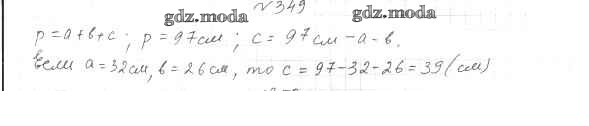 №349
gdz.moda gdz.moda
p=a+b+c; p=97см; c=97см-a-b.
Если a=32см, b=26см, то c=97-32-26=39(см)